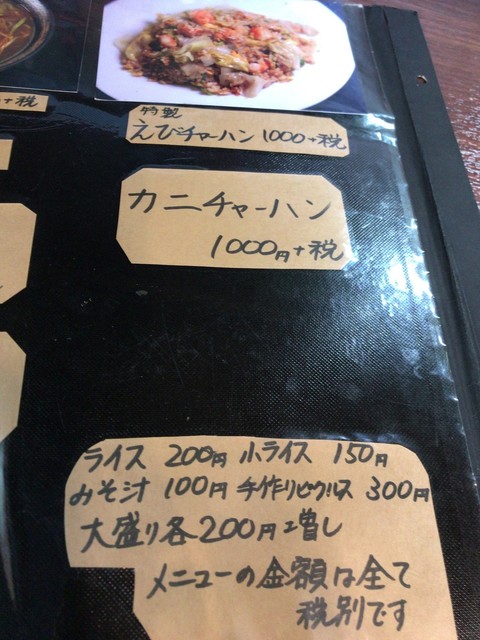 +税
特製
えびチャーハン 1000+税
カニチャーハン
1000円+税
ライス 200円 小ライス 150円
みそ汁 100円 手作りピクルス 300円
大盛り各200円増し
メニューの金額は全て
税別です